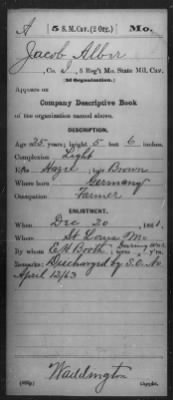 A 5 S.M. Cav. (2 Org.) Mo.
Jacob Alber
, Co. I, 5 Reg't Mo. State Mil. Cav.
(2d Organization.)
Appears on
Company Descriptive Book
of the organization named above.
DESCRIPTION.
Age 25 years; height 5 feet 6 inches.
Complexion Light
Eyes Hazel ; hair Brown
Where born Germany
Occupation Farmer
ENLISTMENT.
When Dec 20, 1861.
Where St. Louis Mo
By whom E. H. Booth ; term y'rs.
Remarks: Discharged by S.O. No
April 13/63
Waddington
Copyist.